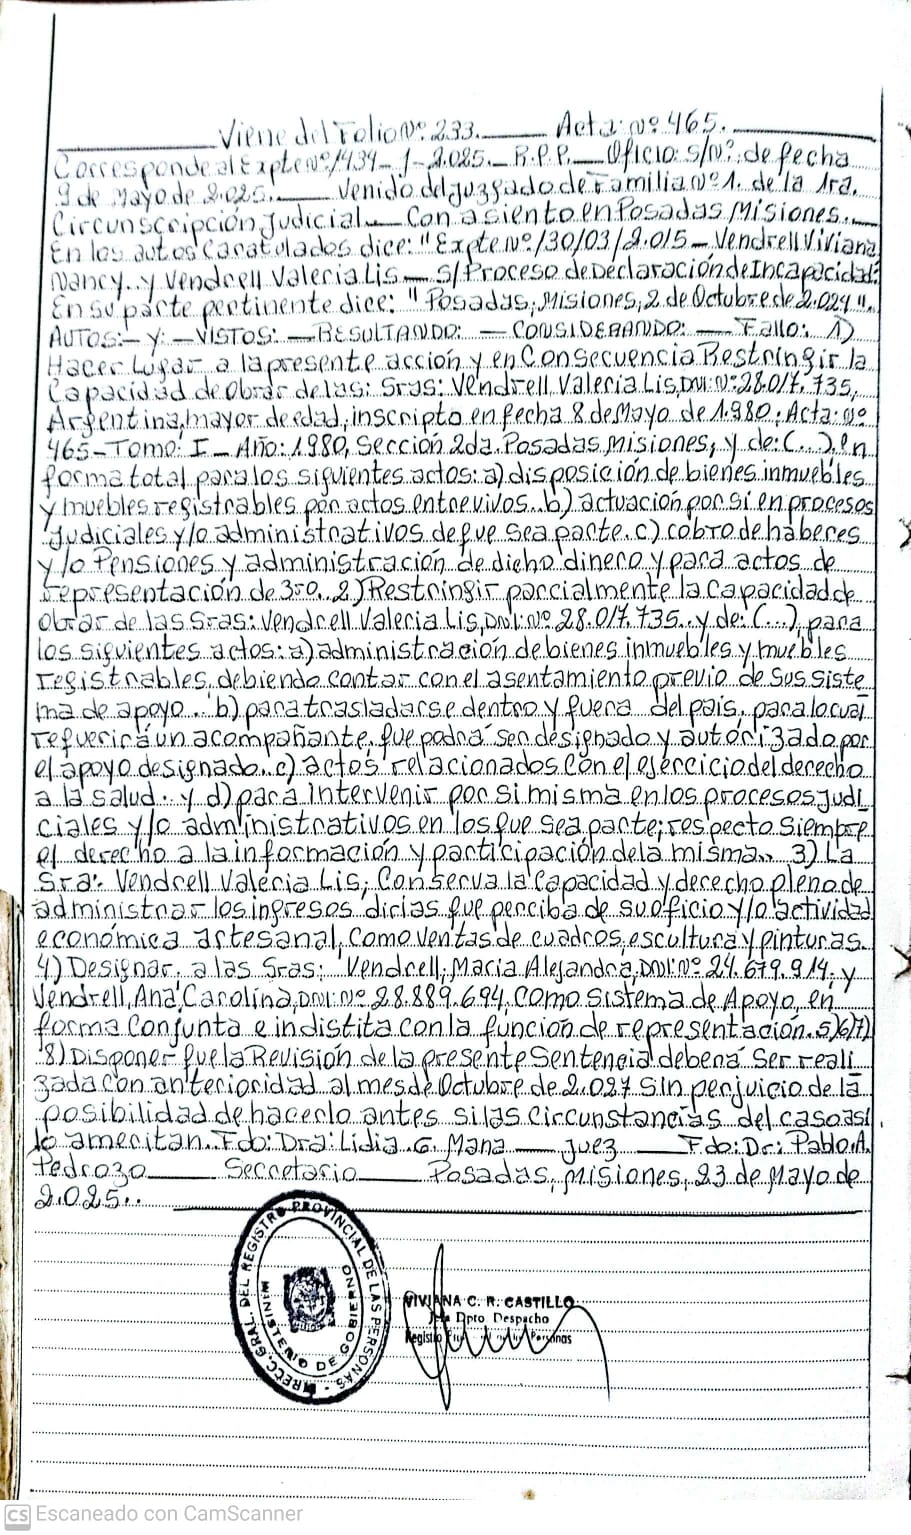 Viene del Folio Nº 233. Acta: Nº 465.
Corresponde al Expte Nº 1434-J-2.025. R.P.P. Oficio: S/Nº: de fecha
9 de Mayo de 2.025. Venido del Juzgado de Familia Nº 1. de la 1ra.
Circunscripción Judicial. Con asiento en Posadas Misiones.
En los autos Caratulados dice: "Expte Nº 130103/2.015 - Vendrell Viviana
Nancy y Vendrell Valeria Lis - S/ Proceso de Declaración de Incapacidad"
En su parte pertinente dice: "Posadas, Misiones, 2 de Octubre de 2.024".
AUTOS: - Y: - VISTOS: - RESULTANDO: - CONSIDERANDO: - Fallo: 1)
Hacer Lugar a la presente acción y en Consecuencia Restringir la
Capacidad de Obrar de las: Sras: Vendrell Valeria Lis, DNI: Nº 28.017.735,
Argentina, mayor de edad, inscripto en fecha 8 de Mayo de 1.980: Acta: Nº
465 - Tomo: I - Año: 1980, Sección 2da. Posadas Misiones, y de: (...) en
forma total para los siguientes actos: a) disposición de bienes inmuebles
y muebles registrables por actos entre vivos.. b) actuación por si en procesos
Judiciales y/o administrativos de que sea parte. c) cobro de haberes
y/o Pensiones y administración de dicho dinero y para actos de
representación de 3ro.. 2) Restringir parcialmente la Capacidad de
obrar de las Sras: Vendrell Valeria Lis, DNI: Nº 28.017.735.. y de: (...), para
los siguientes actos: a) administración de bienes inmuebles y muebles
registrables, debiendo contar con el asentamiento previo de sus siste
ma de apoyo.. b) para trasladarse dentro y fuera del país, para lo cual
requerirá un acompañante, que podrá ser designado y autorizado por
el apoyo designado.. c) actos relacionados con el ejercicio del derecho
a la salud.. y d) para intervenir por si misma en los procesos judi
ciales y/o administrativos en los que sea parte; respecto siempre
el derecho a la información y participación de la misma.. 3) La
Sra: Vendrell Valeria Lis; Conserva la Capacidad y derecho pleno de
administrar los ingresos dicias que perciba de su oficio y/o actividad
económica artesanal, como ventas de cuadros, escultura y pinturas.
4) Designar, a las Sras: Vendrell, Maria Alejandra, DNI: Nº 24.679.914, y
Vendrell, Ana Carolina, DNI: Nº 28.889.694, como Sistema de Apoyo, en
forma Conjunta e indistita con la función de representación. 5)6)7)
8) Disponer que la Revisión de la presente Sentencia deberá ser reali
zada con anterioridad al mes de Octubre de 2.027 sin perjuicio de la
posibilidad de hacerlo antes si las circunstancias del caso asi
lo ameritan. Fdo: Dra: Lidia G. Mana Juez Fdo: Dr: Pablo A.
Pedrozo Secretario Posadas, Misiones, 23 de Mayo de
2.025..
DIRECC. GRAL. DEL REGISTRO PROVINCIAL DE LAS PERSONAS
MINISTERIO DE GOBIERNO
VIVIANA C. R. CASTILLO
Jefa Dpto Despacho
Registro Personas
CS Escaneado con CamScanner